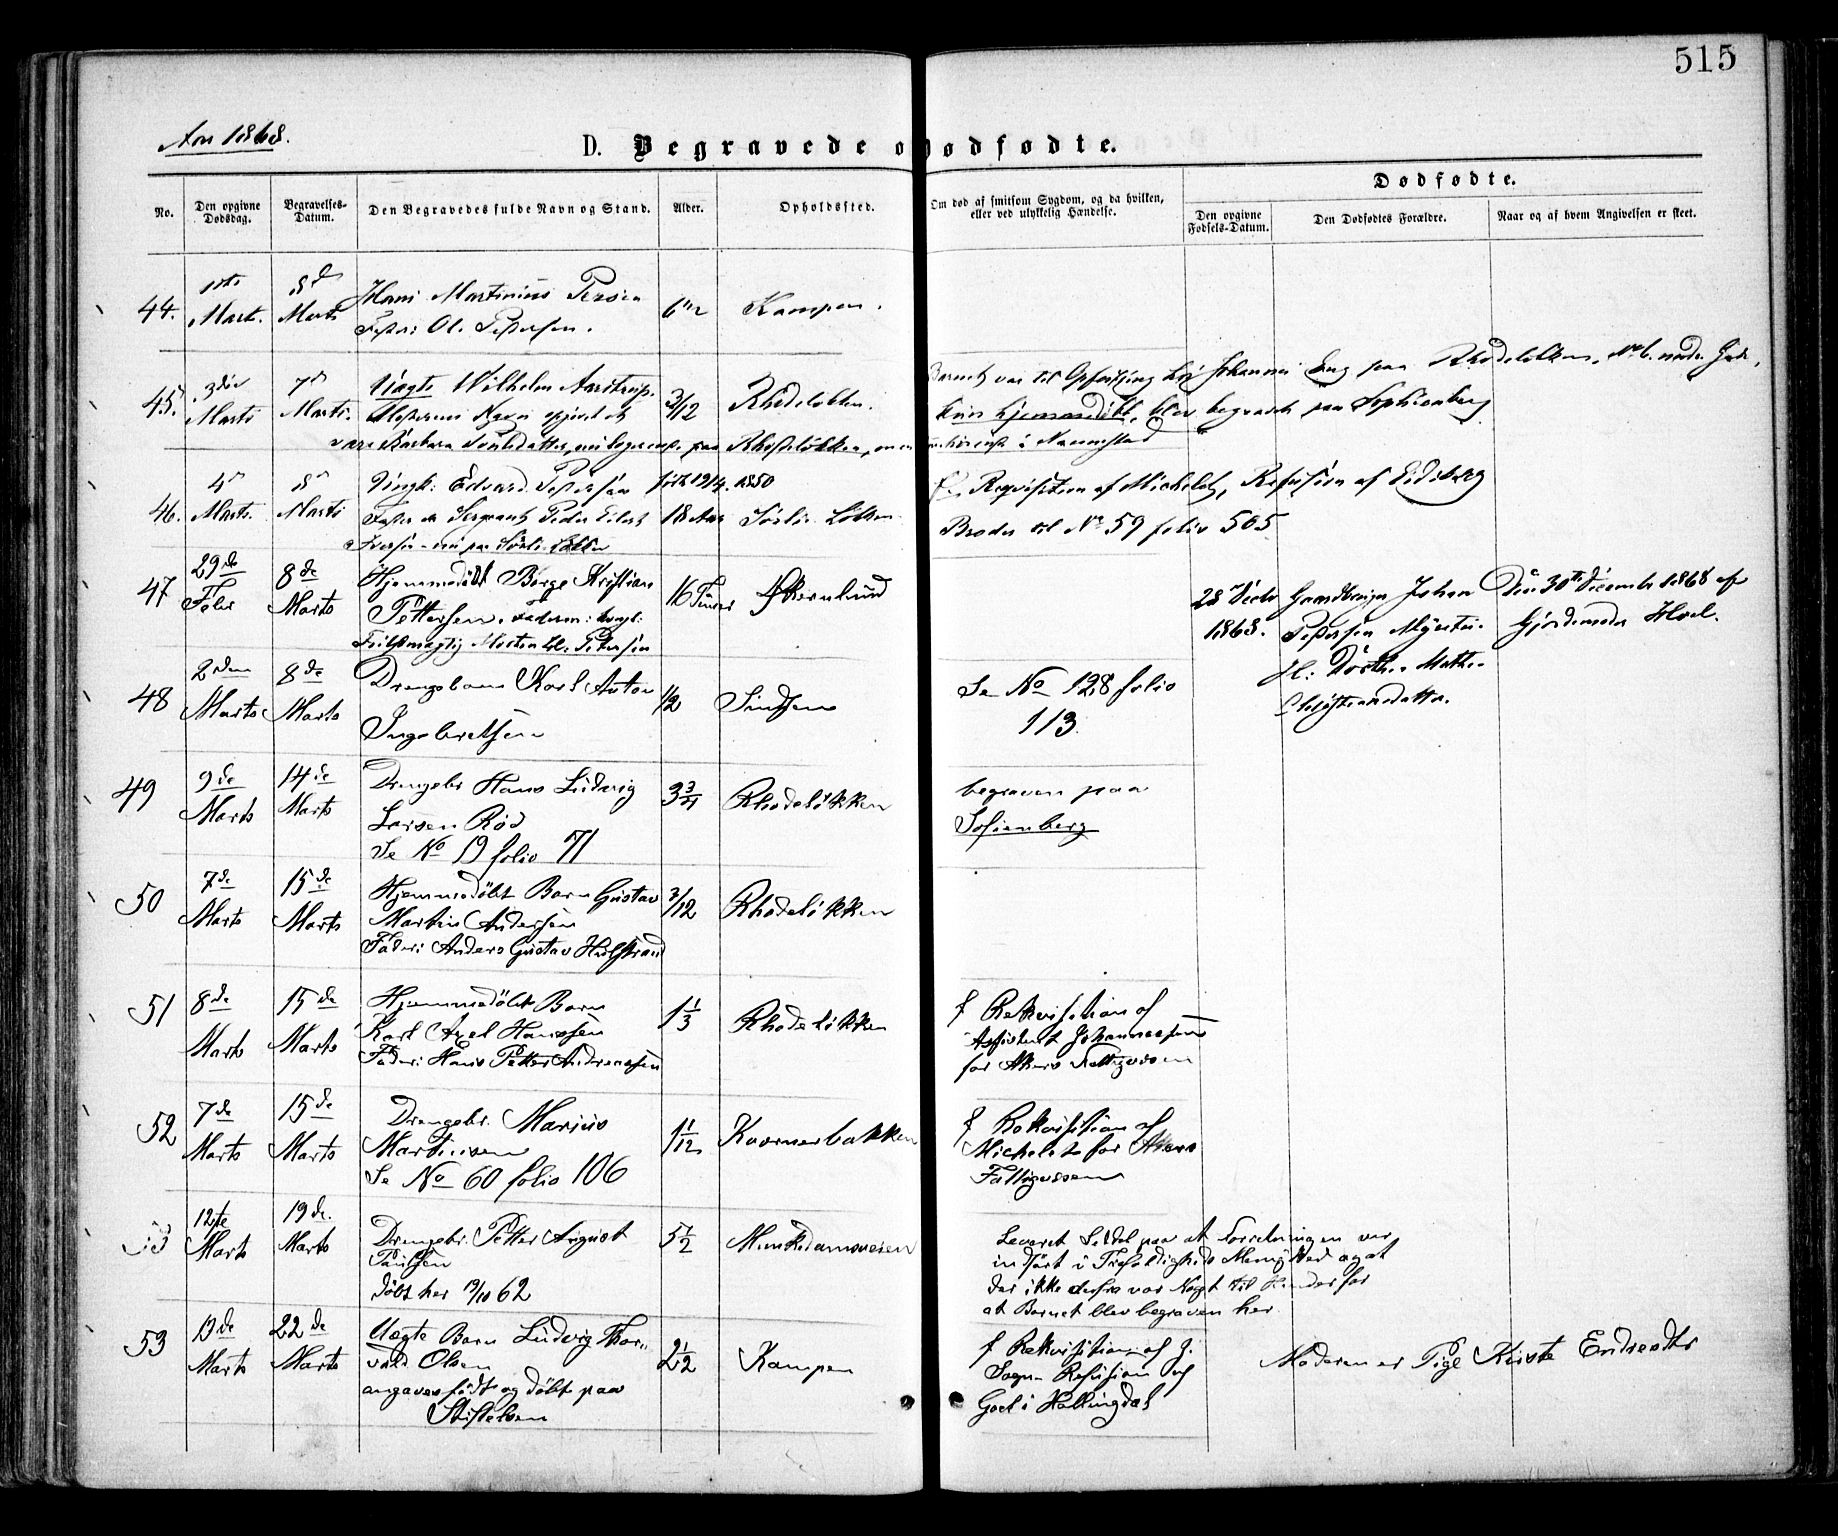 515
Aar 1868.
D. Begravede o Dødfødte.
No.
Den opgivne Dødsdag.
Begravelses-Datum.
Den Begravedes fulde Navn og Stand.
Alder.
Opholdssted.
Om død af smitsom Sygdom, og da hvilken,
eller ved ulykkelig Hændelse.
Dødfødte.
Den opgivne Fødsels-Datum.
Den Dødfødtes Forældre.
Naar og af hvem Angivelsen er skeet.
44. Marts. Marts Hans Martinius
Fader: Ol. Petersen. Kampen.
45. 3die Marts 7d Marts. Uægte Wilhelm 3/12 Rhodeløkken.
Barnet var til Opfostring hos Johannes paa Rhodeløkken, No 6.
begravet paa Sophienberg
46. 4 Marts. 8 Marts Edvard Petersen født 19/4. 1850
Fader er Sergeant Peder 18 Aar
Reqvisition af Michelet, Refusion af Eidsberg
Broder til No 59 folio 505
47 29de Febr 8de Marts Hjemmedøbt Børge Kristian
Pettersen. 16 Timer
Petersen
28 Decbr 1868. Gaardbruger Johan
Petersen
H: Dorthe Mathea
Den 30te December 1868 af
Gjordemoder Hoel.
48 2den Marts 8de Marts Drengebarn Karl Anton
Ingebretsen 1/2 Sinsen
Se No 128 folio
113.
49 9de Marts 14de Marts Drengebr Hans Ludvig
Larsen Rød
Se No 19 folio 71
3 3/4 Rhodeløkken
begraven paa
Sofienberg
50 7de Marts 15de Marts Hjemmedøbt Barn Gustav
Martin Andersen
Fader: Anders Gustav
3/12 Rhodeløkken
51 8de Marts 15de Marts Hjemmedøbt Barn
Karl Axel Hanssen
Fader: Hans Petter Andreassen
1 1/3 Rhodeløkken
f Rekvisition af
Assistent Johannessen
for Akers Fattigvesen
52 7de Marts 15de Marts Drengebr. Marius
Martinsen
Se No 60 folio 106
1 1/12 Kværnerbakken
f Rekvisition af
Michelet for Akers
Fattigvesen
12te Marts 19de. Marts Drengebr. Petter August
Paulsen
døbt her 19/10 62
5 1/2 Munkedamsveien
Leveret Seddel paa at Forretningen var
indført i Trefoldigheds Menighed og at
der ikke derfra var Noget til Hinder for
at Barnet blev begraven her.
53 19de Marts 22de Marts Uægte Barn Ludvig Thor-
vald Olsen
angaves født og døbt paa
Stiftelsen
2 1/2 Kampen
f Rekvisition af J.
Sogn Refusion af
Goel i Hallingdal
Moderen er Pige Kirste Endresdtr